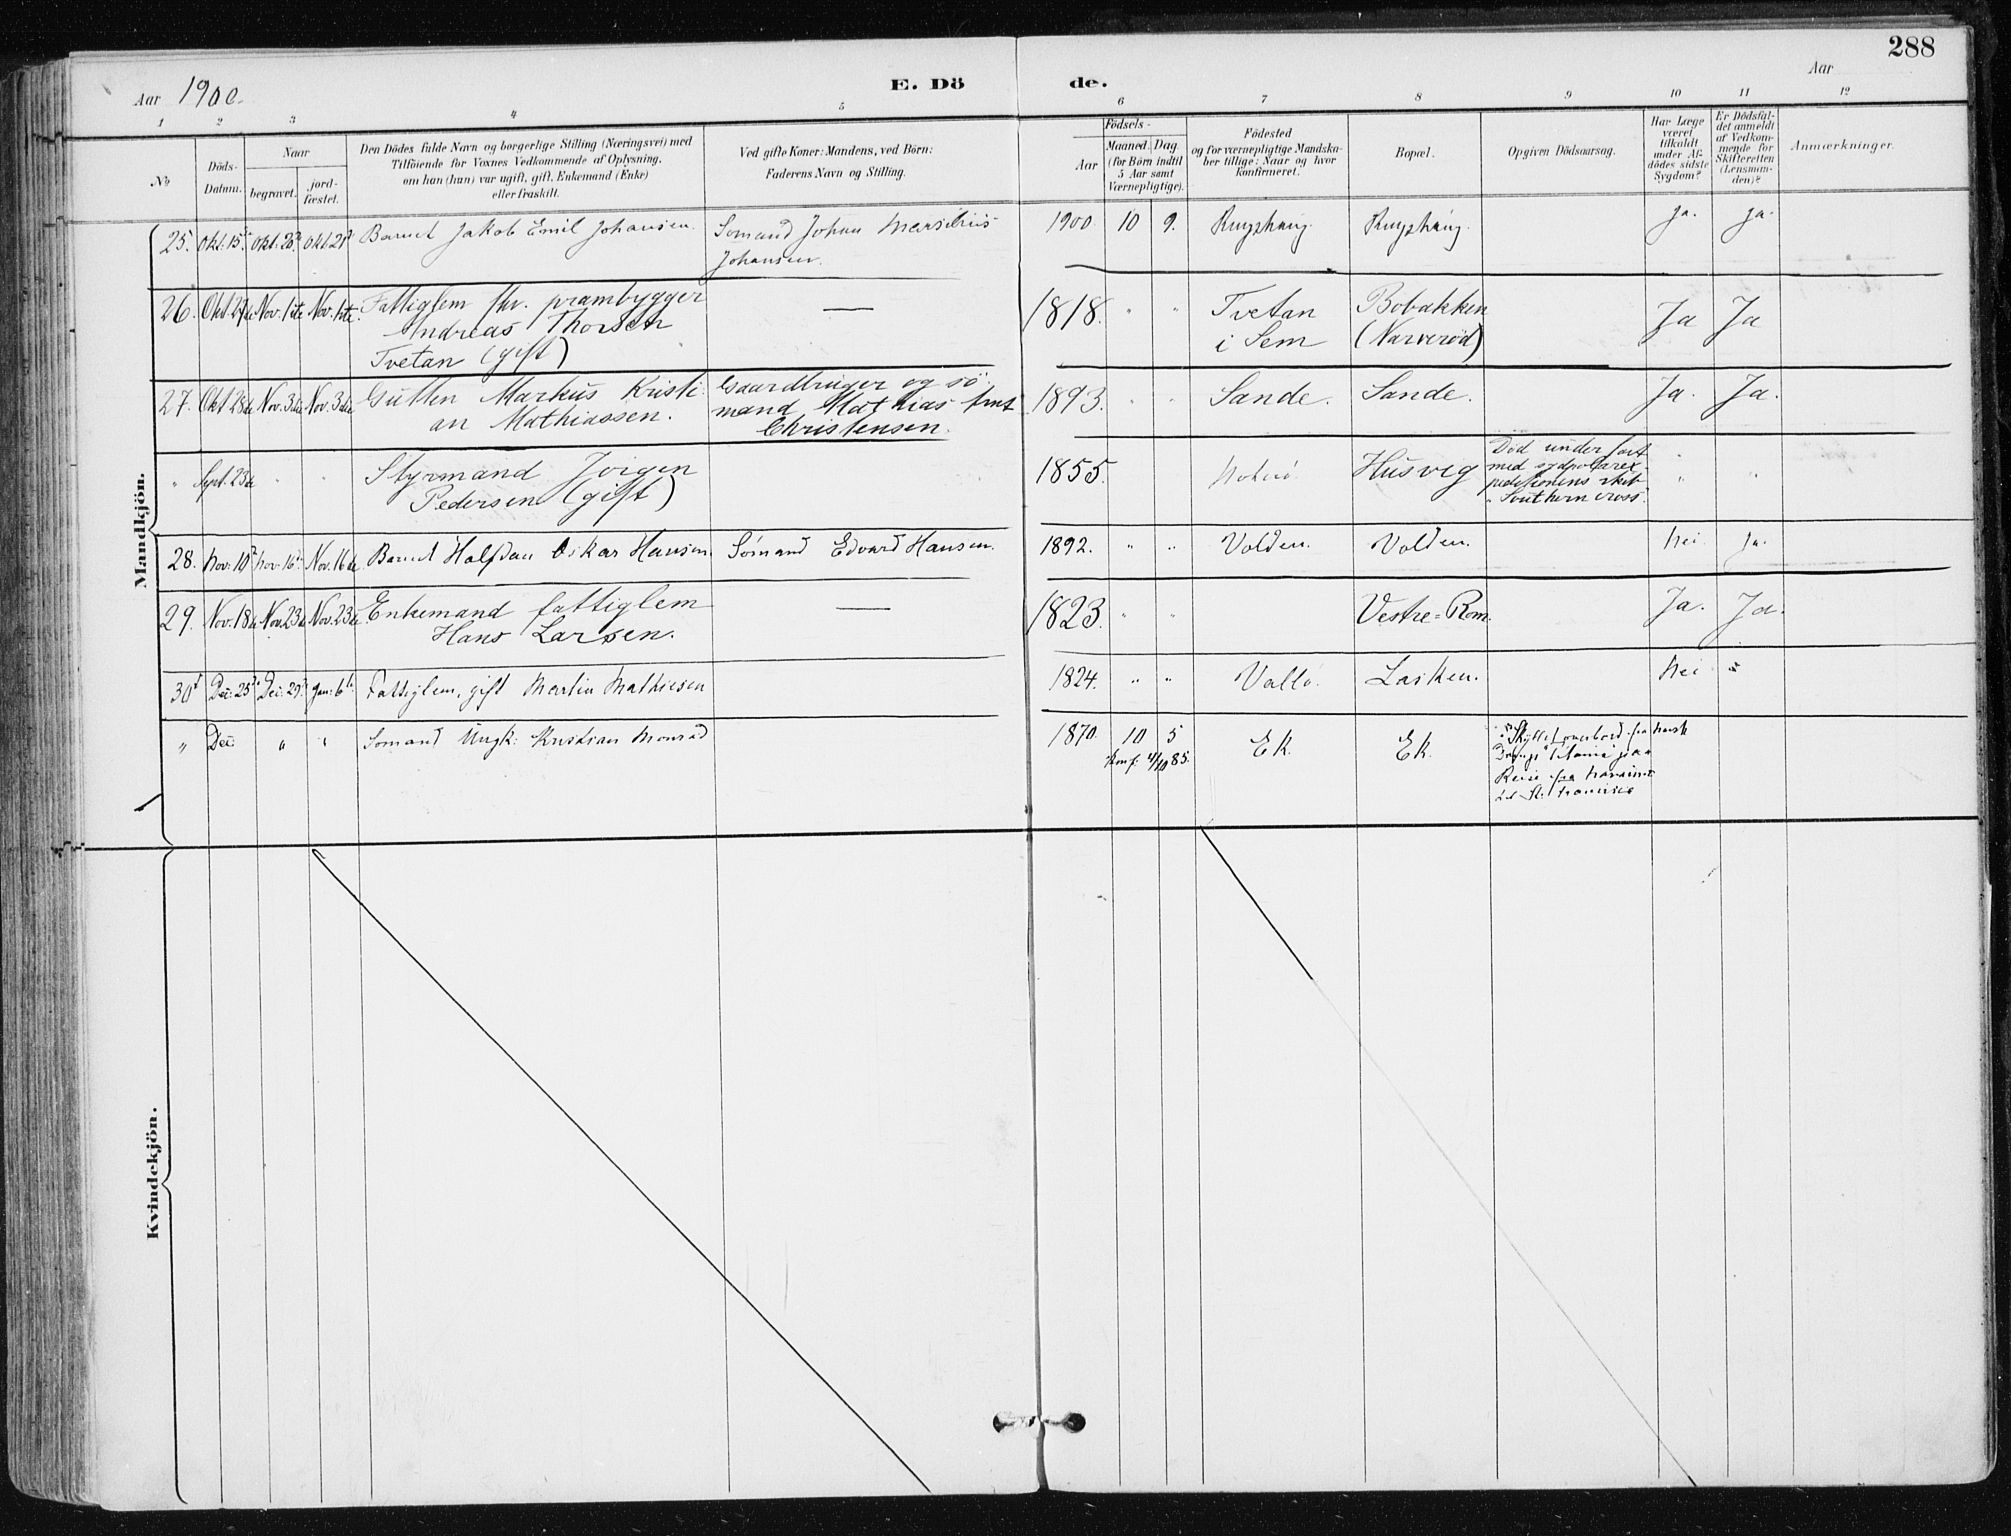 288
Aar 1900.
E. Dö
de.
Aar
1 2 3 4 5 6 7 8 9 10 11 12
No
Döds-
Datum.
Naar
begravet.
jord-
fæstet.
Den Dödes fulde Navn og borgerlige Stilling (Næringsvei) med
Tilföiende for Voxnes Vedkommende af Oplysning,
om han (hun) var ugift, gift, Enkemand (Enke)
eller fraskilt.
Ved gifte Koner: Mandens, ved Börn:
Faderens Navn og Stilling.
Födsels-
Aar
Maaned. Dag
(for Börn indtil
5 Aar samt
Værnepligtige).
Födested
og for værnepligtige Mandska-
ber tillige: Naar og hvor
Konfirmeret.
Bopæl.
Opgiven Dödsaarsag.
Har Læge
været
tilkaldt
under Af-
dödes sidste
Sygdom?
Er Dödsfal-
det anmeldt
af Vedkom-
mende for
Skifteretten
(Lensman-
den)?
Anmærkninger.
Mandkjön.
25. Okt. 15. Okt. 20 Okt. 21 Barnet Jakob Emil Johansen. Sømand Johan Marsilius 1900. 10 9. Ja. Ja.
Johansen.
26. Okt. 27de Nov. 1ste Nov. 1ste Fattiglem fhv. prambygger — 1818. " " Tvetan Bobakken Ja Ja
Andreas Thorsen i Sem (Narverød)
Tvetan (gift)
27. Okt 28de Nov. 3die Nov. 3die Gutten Markus Kristi- Gaardbruger og sø- 1893. " " Sande. Sande. Ja. Ja.
an Mathiassen. mand Mathias
Christensen.
" Sept. 23de " " Styrmand Jörgen 1855. Husvig Død under fart " "
Pedersen (gift) med sydpolarex-
peditionens skib
"Southern cross".
28. Nov. 10 Nov. 16 Nov. 16de Barnet Halfdan Oskar Hansen. Sømand Edvard Hansen. 1892. " " Volden. Volden. Nei. Ja.
29. Nov. 18de Nov. 23de Nov. 23de Enkemand fattiglem — 1823. " " Vestre=Rom. Ja. Ja.
Hans Larsen.
30 Dec. 25 Dec. 29 Jan. 6 Fattiglem, gift Martin Mathiesen 1824. " " Vallø. Lasken. Nei "
" Dec. " " Sømand Ungk. Kristian Monrad 1870. 10 5 Ek. Ek. Skyllet overbord fra norsk
Konf. 4/10 85.
Reise fra
Kvindekjön.